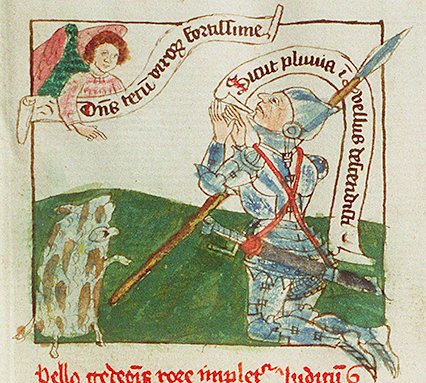 Dn̄s tecū viroꝝ fortissime
Sicut pluuia ī vellus descendisti
Vello gedeōis rore impletꝰ Iudicū 6